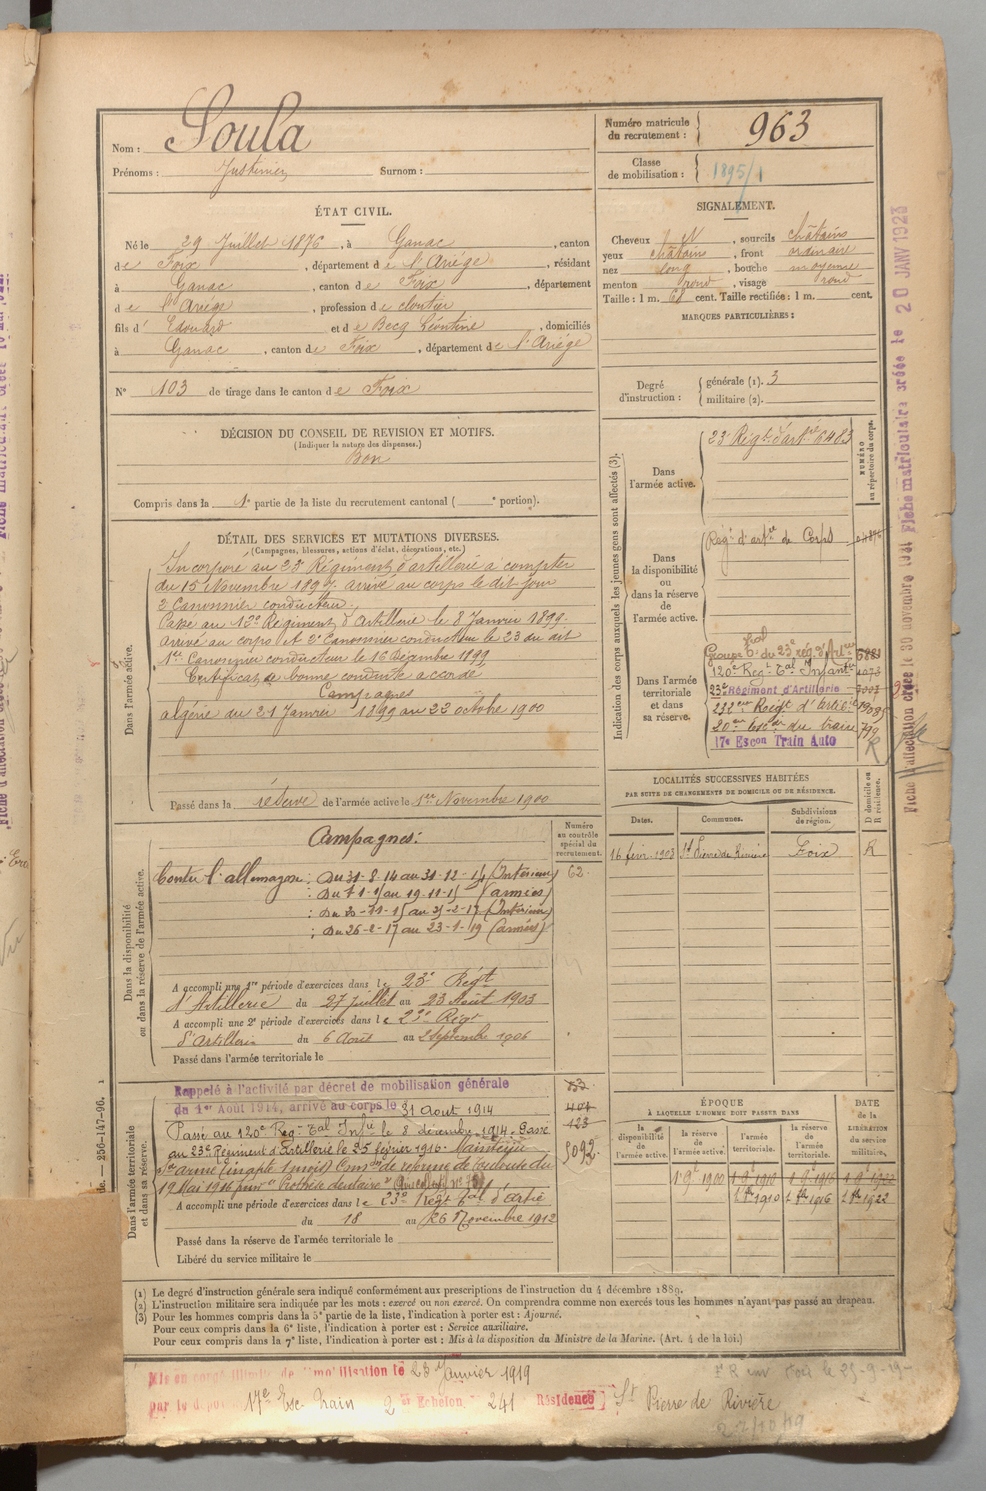 Nom : Soula
Prénoms : Justinien Surnom :
Numéro matricule du recrutement : 963
Classe de mobilisation : 1895/1
ÉTAT CIVIL.
Né le 29 Juillet 1876, à Ganac, canton
de Foix, département de l'Ariège, résidant
à Ganac, canton de Foix, département
de l'Ariège, profession de cloutier
fils d'Edouard et de Becq Léontine, domiciliés
à Ganac, canton de Foix, département de l'Ariège
N° 103 de tirage dans le canton de Foix
SIGNALEMENT.
Cheveux, sourcils châtains
yeux châtains, front ordinaire
nez long, bouche moyenne
menton rond, visage rond
Taille : 1 m. 68 cent. Taille rectifiée : 1 m. cent.
MARQUES PARTICULIÈRES :
Degré d'instruction : générale (1). 3
militaire (2).
DÉCISION DU CONSEIL DE REVISION ET MOTIFS.
(Indiquer la nature des dispenses.)
Bon
Compris dans la 1e partie de la liste du recrutement cantonal ( e portion).
DÉTAIL DES SERVICES ET MUTATIONS DIVERSES.
(Campagnes, blessures, actions d'éclat, décorations, etc.)
Dans l'armée active.
Incorporé au 23e Régiment d'artillerie à compter
du 15 Novembre 1897. arrivé au corps le dit jour
2e Canonnier conducteur.
Passé au 12e Régiment d'Artillerie le 8 Janvier 1899.
arrivé au corps et 2e Canonnier conducteur le 23 du dit
1er Canonnier conducteur le 16 Décembre 1899
Certificat de bonne conduite accordé
Campagnes
algérie du 21 Janvier 1899 au 22 octobre 1900
Passé dans la réserve de l'armée active le 1er Novembre 1900
Indication des corps auxquels les jeunes gens sont affectés (3).
NUMÉRO au répertoire du corps.
Dans l'armée active.
23e Régt d'artie 6483
Dans la disponibilité ou dans la réserve de l'armée active.
Régt d'artie de Corps
Dans l'armée territoriale et dans sa réserve.
Groupe tal du 23e rég. d'Artie
120e Regt tal Infanterie
23e Régiment d'Artillerie
222e Régt d'artie
20e Escon du train 792
17e Escon Train Auto R
LOCALITÉS SUCCESSIVES HABITÉES
PAR SUITE DE CHANGEMENTS DE DOMICILE OU DE RÉSIDENCE.
Dates. Communes. Subdivisions de région. D domicile ou R résidence.
16 févr. 1903 St Pierre de Rivière Foix R
Dans la disponibilité ou dans la réserve de l'armée active.
Numéro au contrôle spécial du recrutement.
62.
Campagnes :
Contre l'allemagne : Du 31-8-14 au 31-12-14 (Intérieur)
: Du 1-1-15 au 19-11-15 (armées)
: Du 20-11-15 au 25-2-17 (Intérieur)
: Du 26-2-17 au 23-1-19 (armées)
A accompli une 1re période d'exercices dans le 23e Régt
d'Artillerie du 27 Juillet au 23 Août 1903
A accompli une 2e période d'exercices dans le 23e Régt
d'Artillerie du 6 Août au 2 Septembre 1906
Passé dans l'armée territoriale le
Dans l'armée territoriale et dans sa réserve.
Rappelé à l'activité par décret de mobilisation générale
du 1er Août 1914, arrivé au corps le 31 Aout 1914
Passé au 120e Regt tal Infie le 8 décembre 1914. Passé
au 23e Régiment d'Artillerie le 25 février 1916. Maintenu
Sce armé (inapte 1 mois) Comon de réforme de Toulouse du
19 Mai 1916 pour "Prothèse dentaire"
5092
A accompli une période d'exercices dans le 23e Régt tal d'artie
du 18 au 26 Novembre 1912
Passé dans la réserve de l'armée territoriale le
Libéré du service militaire le
ÉPOQUE
À LAQUELLE L'HOMME DOIT PASSER DANS
la disponibilité de l'armée active. la réserve de l'armée active. l'armée territoriale. la réserve de l'armée territoriale.
DATE de la LIBÉRATION du service militaire.
1 9e 1900 1 9e 1910 1 9e 1916 1 9e 1922
1910 1916 1922
(1) Le degré d'instruction générale sera indiqué conformément aux prescriptions de l'instruction du 4 décembre 1889.
(2) L'instruction militaire sera indiquée par les mots : exercé ou non exercé. On comprendra comme non exercés tous les hommes n'ayant pas passé au drapeau.
(3) Pour les hommes compris dans la 5e partie de la liste, l'indication à porter est : Ajourné.
Pour ceux compris dans la 6e liste, l'indication à porter est : Service auxiliaire.
Pour ceux compris dans la 7e liste, l'indication à porter est : Mis à la disposition du Ministre de la Marine. (Art. 4 de la loi.)
Mis en congé illimité de démobilisation le 23 Janvier 1919
par le dépôt 17e Esc. Train 2e Echelon 241 Résidence St Pierre de Rivière
22/10/19
Fiche matriculaire créée le 20 JANV 1923
256-147-96.